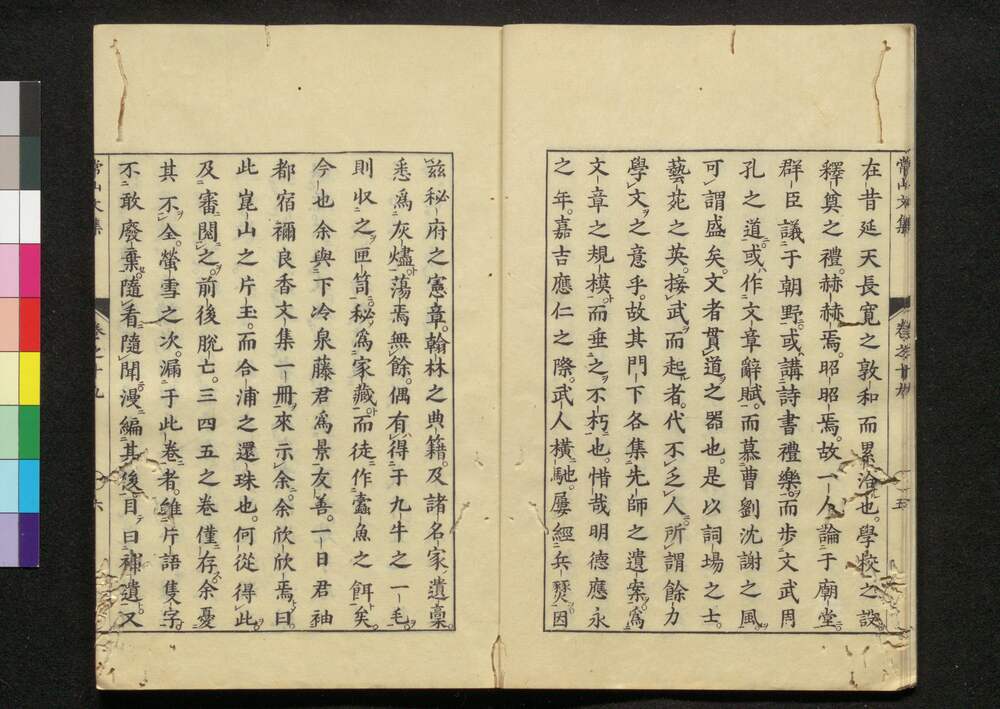 常山文集
卷之十九
五
在昔延天長寛之敦和而累洽也。學校之設
釋奠之禮。赫赫焉。昭昭焉。故一人論于廟堂
群臣議于朝野。或講詩書禮樂。而歩文武周
孔之道。或作文章辭賦。而慕曹劉沈謝之風。
可謂盛矣。文者貫道之器也。是以詞場之士。
藝苑之英。接武而起者。代不乏人。所謂餘力
學文之意乎。故其門下各集先師之遺案。爲
文章之規模。而垂之不朽也。惜哉明德應永
之年。嘉吉應仁之際。武人橫馳。屢經兵燹。因
茲秘府之憲章。翰林之典籍。及諸名家遺稾。
悉爲灰燼。蕩焉無餘。偶有得于九牛之一毛。
則収之匣笥。秘爲家藏。而徒作蠧魚之餌矣。
今也余與下冷泉藤君爲景友善。一日君袖
都宿禰良香文集一冊來示余。余欣欣焉。曰。
此崑山之片玉。而合浦之還珠也。何從得此。
及審閱之。前後脱亡。三四五之卷僅存。余憂
其不全。螢雪之次。漏于此卷者。雖片語隻字。
不敢廢棄。隨看隨聞。漫編其後。目曰補遺。又
常山文集
卷之十九
六